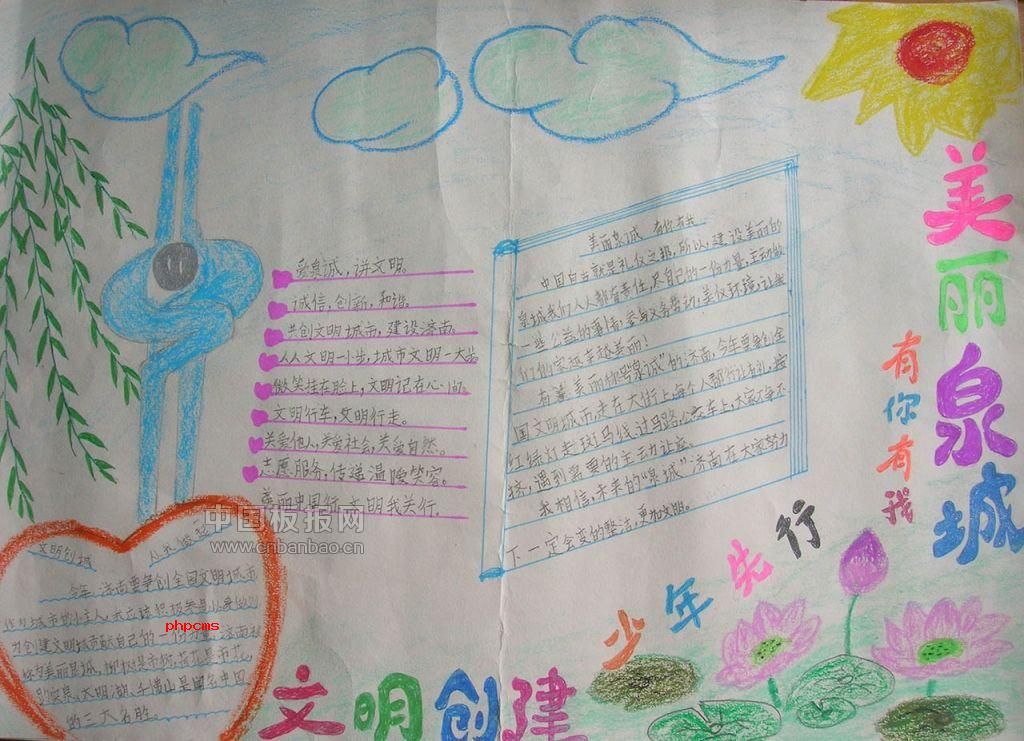 美丽泉城
有你有我
美丽泉诚 有你有我
中国自古就是礼仪之邦,所以,建设美丽的
泉城我们人人都有责任,尽自己的一份力量,主动做
一些公益的事情,参与义务劳动,美化环境,让我
们的家越来越美丽!
有着美丽称号“泉诚”的济南,今年要争创全
国文明城市,走在大街上,每个人都行让右礼,按
红绿灯走斑马线过马路,公交车上,大家不争不
挤,遇到需要的主动让座。
我相信,未来的“泉城”济南在大家努力
下一定会变的整洁,更加文明。
爱泉诚,讲文明。
诚信,创新,和谐。
共创文明城市,建设济南。
人人文明一小步,城市文明一大步
微笑挂在脸上,文明记在心间。
文明行车,文明行走。
关爱他人,关爱社会,关爱自然。
志愿服务,传递温暖笑容。
美丽中国行,文明我先行。
中国板报网
www.cnbanbao.cn
文明创城 从我做起
今年,济南要争创全国文明城市
作为城市的小主人,我应该积极参
为创建文明城贡献自己的一份力量,济南
称为美丽泉城,柳树是市树,荷花是市花,
趵突泉、大明湖、千佛山是闻名中国
的三大名胜。
phpcms
少年先行
文明创建